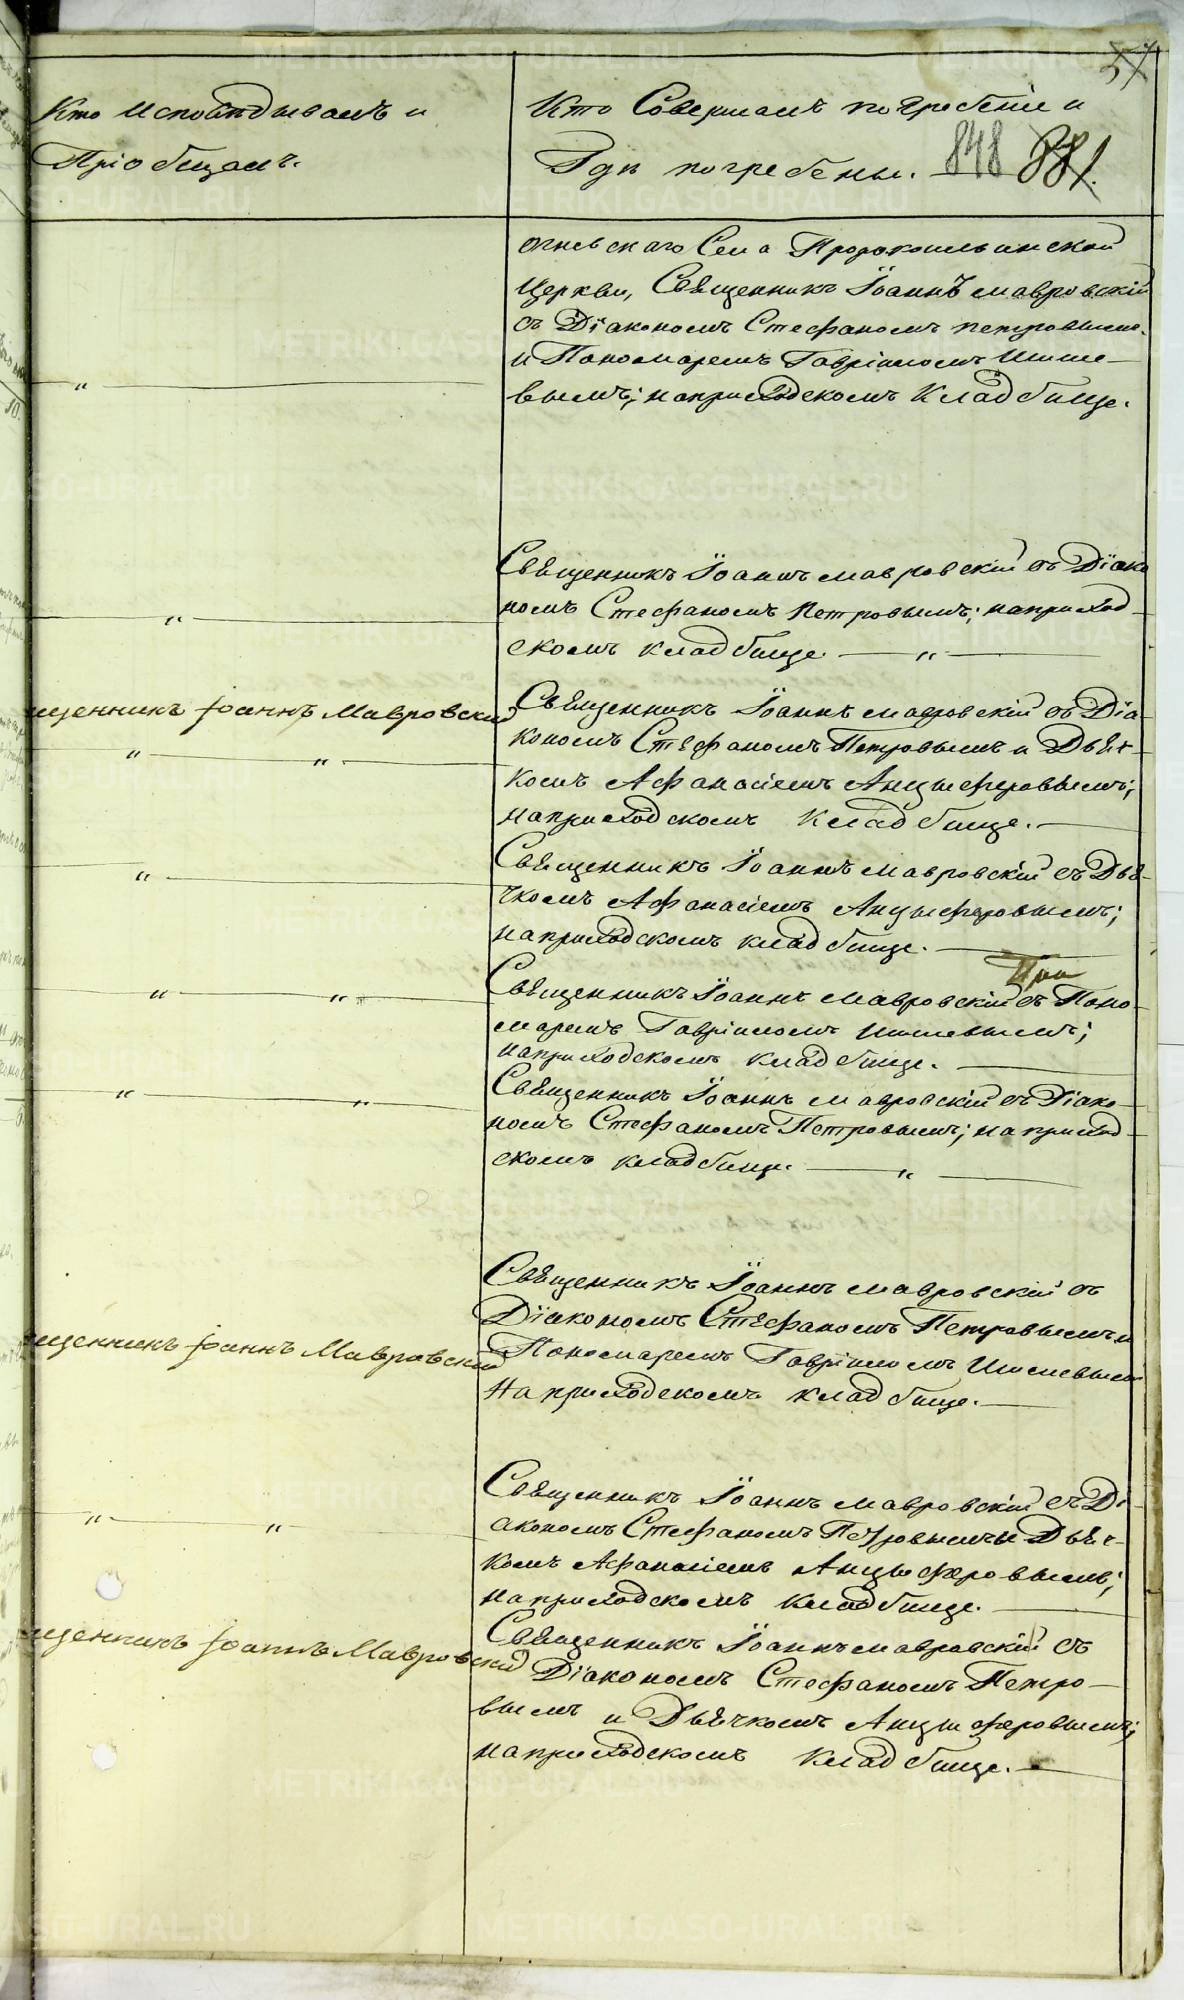 57
Кто Исповѣдывалъ и
Пріобщалъ.
Кто Совершалъ погребеніе и
Гдѣ погребены. 848 881.
огневскаго Села Прокопьинской
Церкви, Священникъ Іоаннъ Мавровскій
съ Діакономъ Стефаномъ Петровымъ
и Пономаремъ Гавріиломъ Шише-
вымъ; на приходскомъ Кладбище.
"
Священникъ Іоаннъ Мавровскій съ Діако
номъ Стефаномъ Петровымъ; на приход-
скомъ кладбище. — " —
"
Священникъ Іоаннъ Мавровскій съ Діа-
кономъ Стефаномъ Петровымъ и Дьяч-
комъ Афанасіемъ Анцыферовымъ;
на приходскомъ Кладбище. —
щенникъ Іоаннъ Мавровскій
" "
Священникъ Іоаннъ Мавровскій съ Дья-
чкомъ Афанасіемъ Анцыферовымъ;
на приходскомъ кладбище. —
"
Священникъ Іоаннъ Мавровскій съ Поно-
маремъ Гавріиломъ Шишевымъ;
на приходскомъ кладбище. —
" "
Священникъ Іоаннъ Мавровскій съ Діако-
номъ Стефаномъ Петровымъ; на приход-
скомъ кладбище. — " —
" "
Священникъ Іоаннъ Мавровскій съ
Діакономъ Стефаномъ Петровымъ и
Пономаремъ Гавріиломъ Шишевымъ
На приходскомъ кладбище. —
щенникъ Іоаннъ Мавровскій
Священникъ Іоаннъ Мавровскій съ Ді-
акономъ Стефаномъ Петровымъ и Дьяч-
комъ Афанасіемъ Анцыферовымъ;
на приходскомъ Кладбище. —
" "
Священникъ Іоаннъ Мавровскій съ
Діакономъ Стефаномъ Петро-
вымъ и Дьячкомъ Анцыферовымъ;
на приходскомъ Кладбище. —
щенникъ Іоаннъ Мавровскій